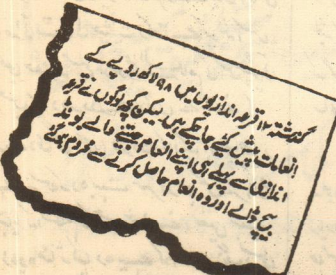 گزشتہ ۱۲ قرعہ اندازیوں میں ۹۸ لاکھ روپے کے
انعامات پیش کئے جا چکے ہیں لیکن کچھ لوگوں نے قرعہ
اندازی سے پہلے ہی اپنے انعام جیتنے والے بونڈ
بیچ ڈالے اور وہ انعام حاصل کرنے سے محروم ہو گئے